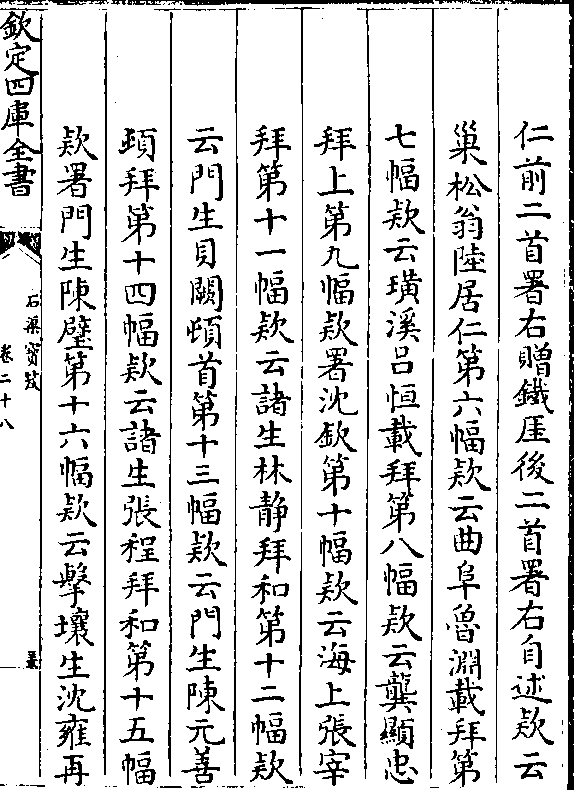 仁前二首署右贈鐵厓後二首署右自述欵云
巢松翁陸居仁第六幅欵云曲阜魯淵載拜第
七幅欵云璜溪吕恒載拜第八幅欵云龔顯忠
拜上第九幅欵署沈欽第十幅欵云海上張宰
拜第十一幅欵云諸生林静拜和第十二幅欵
云門生貝闕頓首第十三幅欵云門生陳元善
頓拜第十四幅欵云諸生張程拜和第十五幅
欵署門生陳璧第十六幅欵云擊壤生沈雍再
欽定四庫全書
石渠寳笈
卷二十八